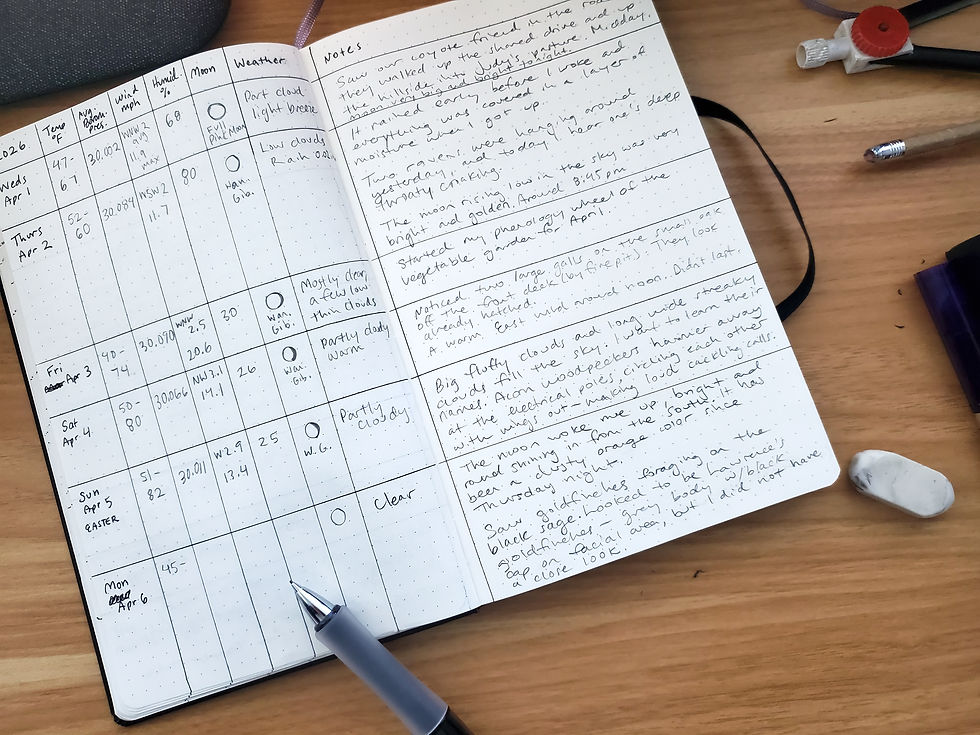 2026
Temp °F
Avg. Barom. pres.
Wind mph
Humid. %
Moon
Weather
Weds Apr 1
47-
67
30.002
11.9
max
68
Full Pink Moon
Part cloud
light breeze
Thurs
Apr 2
52-
60
30.084
WSW2
11.7
80
Wan.
Gib.
Low clouds
Rain
Fri
Apr 3
40-
74
30.090
WNW
2.5
20.6
30
Wan.
Gib.
Mostly clear,
a few low
thin clouds
Sat
Apr 4
50-
80
30.066
NW3.1
14.1
26
Wan.
Gib.
Partly cloudy
warm
Sun
Apr 5
EASTER
51-
82
30.011
W2.9
13.4
25
W.G.
Partly
Cloudy
Mon
Apr 6
45-
Clear
Notes
Saw our coyote friend in the
they walked up the shared drive and up
the hillside into Judy's pasture. Midday.
moon very big and bright tonight.
It rained early before I woke and
everything was covered in a layer of
moisture when I got up.
Two ravens were hanging around
yesterday, and today I hear one's deep
throaty croaking.
The moon rising low in the sky was very
bright and golden. Around 8:45pm.
Started my phenology wheel of the
vegetable garden for April.
Noticed two large galls on the small oak
off the front deck (by firepit). They look
already hatched.
A warm East wind around noon. Didn't last.
Big fluffy clouds and long wide streaky
clouds fill the sky. I want to learn their
names. Acorn woodpeckers hammer away
at the electrical poles, circling each other
with wings out - making loud cackling calls.
The moon woke me up, bright and
round shining in from the south. It has
been a dusty orange color since
Thursday night.
Saw goldfinches foraging on the
black sage. Looked to be Lawrence's
goldfinches - grey body w/black
cap on facial area, but I did not have
a close look.